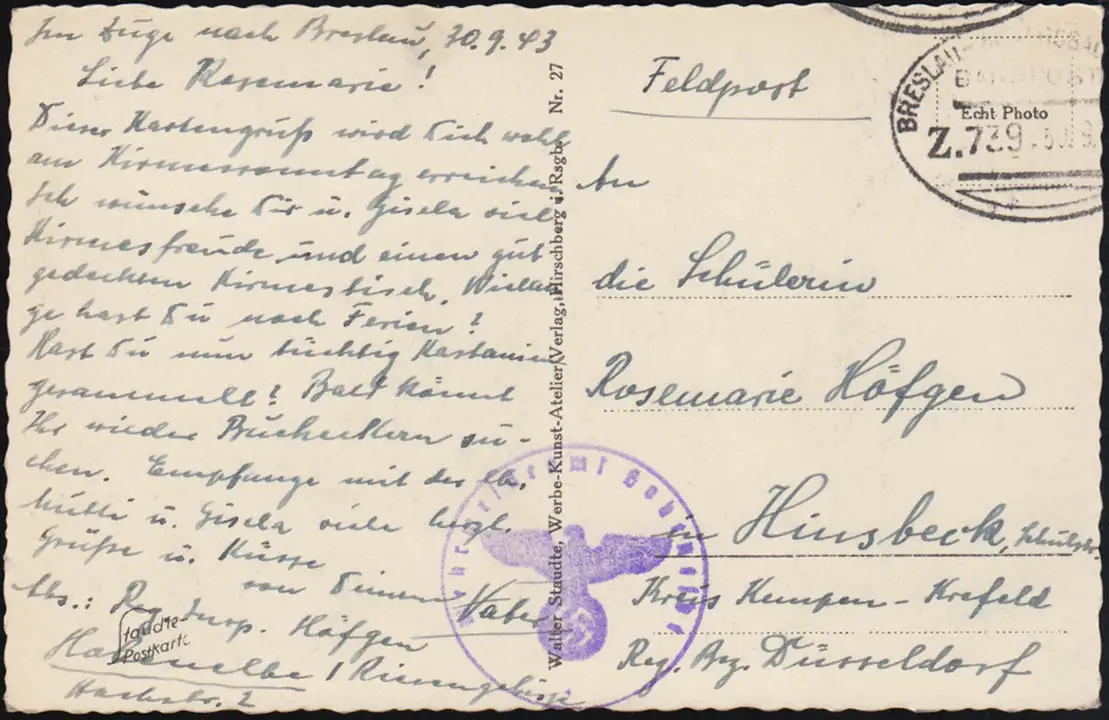 Im Zuge nach Breslau, 30.9.43
Liebe Rosemarie!
Dieser Kartengruß wird Dich wohl
am Kirmessonntag erreichen
Ich wünsche Dir u. Gisela viel
Kirmesfreude und einen gut
gedeckten Kirmestisch. Wielan
ge hast Du noch Ferien?
Hast Du nun tüchtig Kastanien
gesammelt? Bald könnt
Ihr wieder Bucheckern su-
chen. Empfange mit der lb.
Mutti u. Gisela viele herzl.
Grüße u. Küsse
von Deinem Vater
Abs.: Insp. Höfgen
/ Riesengebirge
2
Staudte-
Postkarte
Walter Staudte, Werbe-Kunst-Atelier/Verlag, Hirschberg i. Rsgb. Nr. 27
Feldpost
BRESLAU
BAHNPOST
Echt Photo
Z.739
An
die Schülerin
Rosemarie Höfgen
in Hinsbeck, Schulstr.
Kreis Kempen-Krefeld
Reg. Bez. Düsseldorf